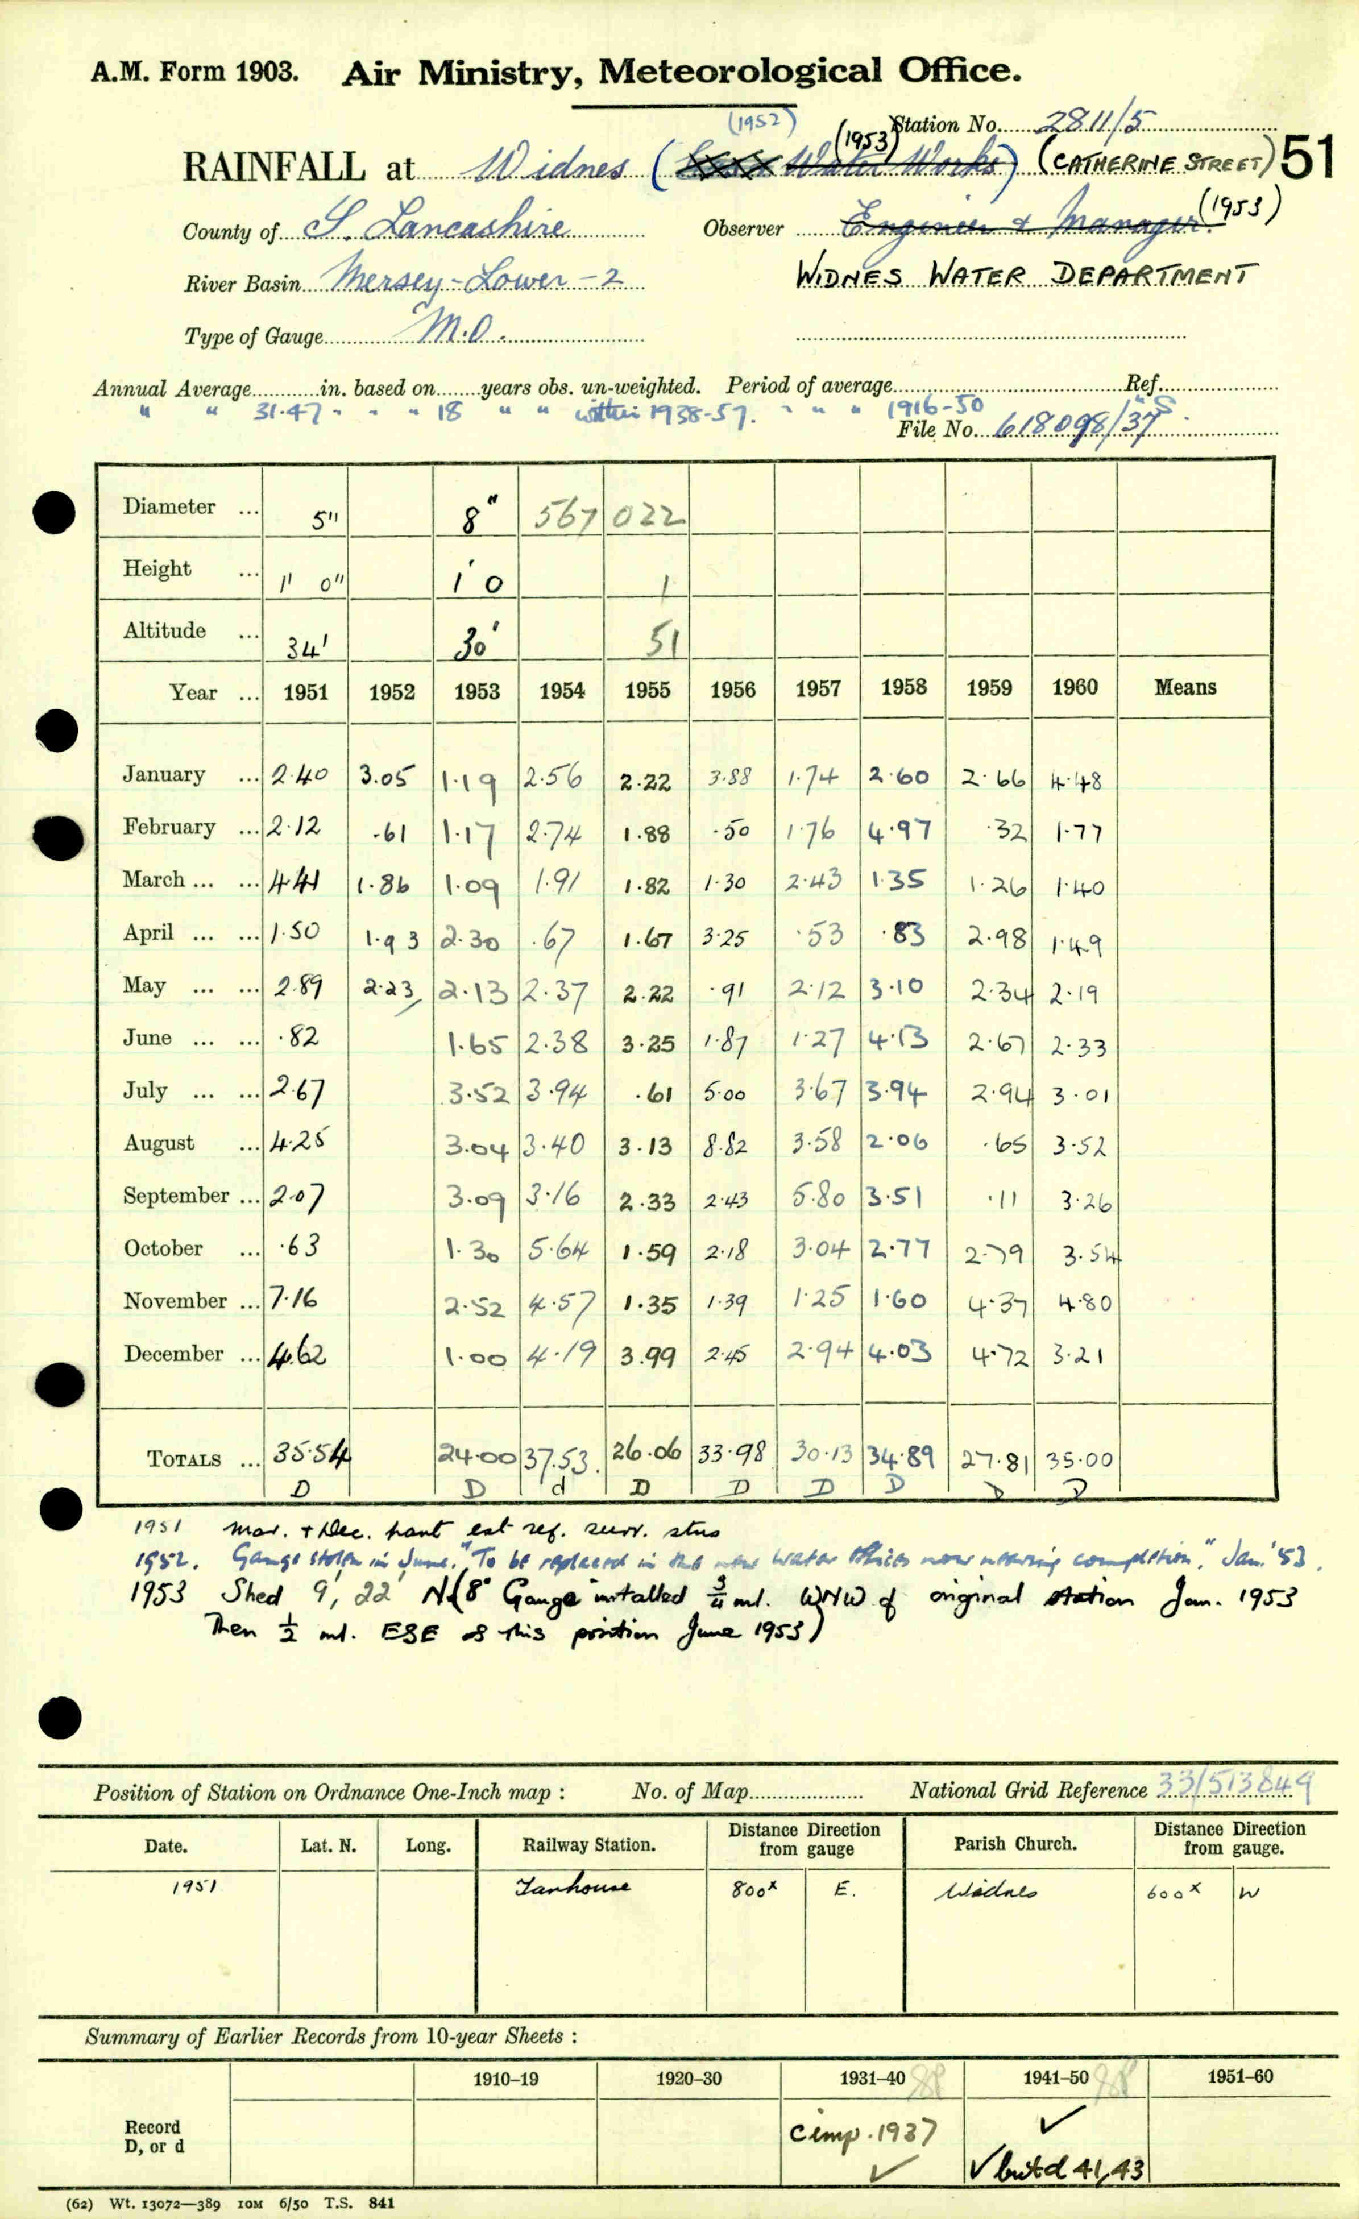 A.M. Form 1903. Air Ministry, Meteorological Office.
(1952) (1953) Station No. 2811/5
RAINFALL at Widnes ( Water Works) (CATHERINE STREET) 51
County of S. Lancashire Observer Engineer & Manager. (1953)
River Basin Mersey-Lower-2 WIDNES WATER DEPARTMENT
Type of Gauge M.O.
Annual Average in. based on years obs. un-weighted. Period of average Ref.
" " 31.47 " " " 18 " " within 1938-57. " " " 1916-50 " S.
File No. 618098/37
Diameter ... 5" 8" 567 022
Height ... 1' 0" 1' 0 1
Altitude ... 34' 30' 51
Year ... 1951 1952 1953 1954 1955 1956 1957 1958 1959 1960 Means
January ... 2.40 3.05 1.19 2.56 2.22 3.88 1.74 2.60 2.66 4.48
February ... 2.12 .61 1.17 2.74 1.88 .50 1.76 4.97 .32 1.77
March ... ... 4.41 1.86 1.09 1.91 1.82 1.30 2.43 1.35 1.26 1.40
April ... ... 1.50 1.93 2.30 .67 1.67 3.25 .53 .83 2.98 1.49
May ... ... 2.89 2.23 2.13 2.37 2.22 .91 2.12 3.10 2.34 2.19
June ... ... .82 1.65 2.38 3.25 1.87 1.27 4.13 2.67 2.33
July ... ... 2.67 3.52 3.94 .61 5.00 3.67 3.94 2.94 3.01
August ... 4.25 3.04 3.40 3.13 8.82 3.58 2.06 .65 3.52
September ... 2.07 3.09 3.16 2.33 2.43 5.80 3.51 .11 3.26
October ... .63 1.30 5.64 1.59 2.18 3.04 2.77 2.79 3.54
November ... 7.16 2.52 4.57 1.35 1.39 1.25 1.60 4.37 4.80
December ... 4.62 1.00 4.19 3.99 2.45 2.94 4.03 4.72 3.21
TOTALS ... 35.54 24.00 37.53. 26.06 33.98 30.13 34.89 27.81 35.00
D D d D D D D D D
1951 Mar. + Dec. part est ref. surr. stns
1952. Gauge stolen in June. "To be replaced in the new Water Offices now nearing completion." Jan. '53.
1953 Shed 9', 22' N (8" Gauge installed 3/4 ml. WNW of original station Jan. 1953
Then 1/2 ml. ESE of this position June 1953)
Position of Station on Ordnance One-Inch map : No. of Map National Grid Reference 33/513849
Date. Lat. N. Long. Railway Station. Distance Direction from gauge Parish Church. Distance Direction from gauge.
1951 Tanhouse 800x E. Widnes 600x W
Summary of Earlier Records from 10-year Sheets :
1910-19 1920-30 1931-40 1941-50 1951-60
Record D, or d comp. 1937 ✓ ✓
✓ but d 41, 43
(62) Wt. 13072—389 10M 6/50 T.S. 841